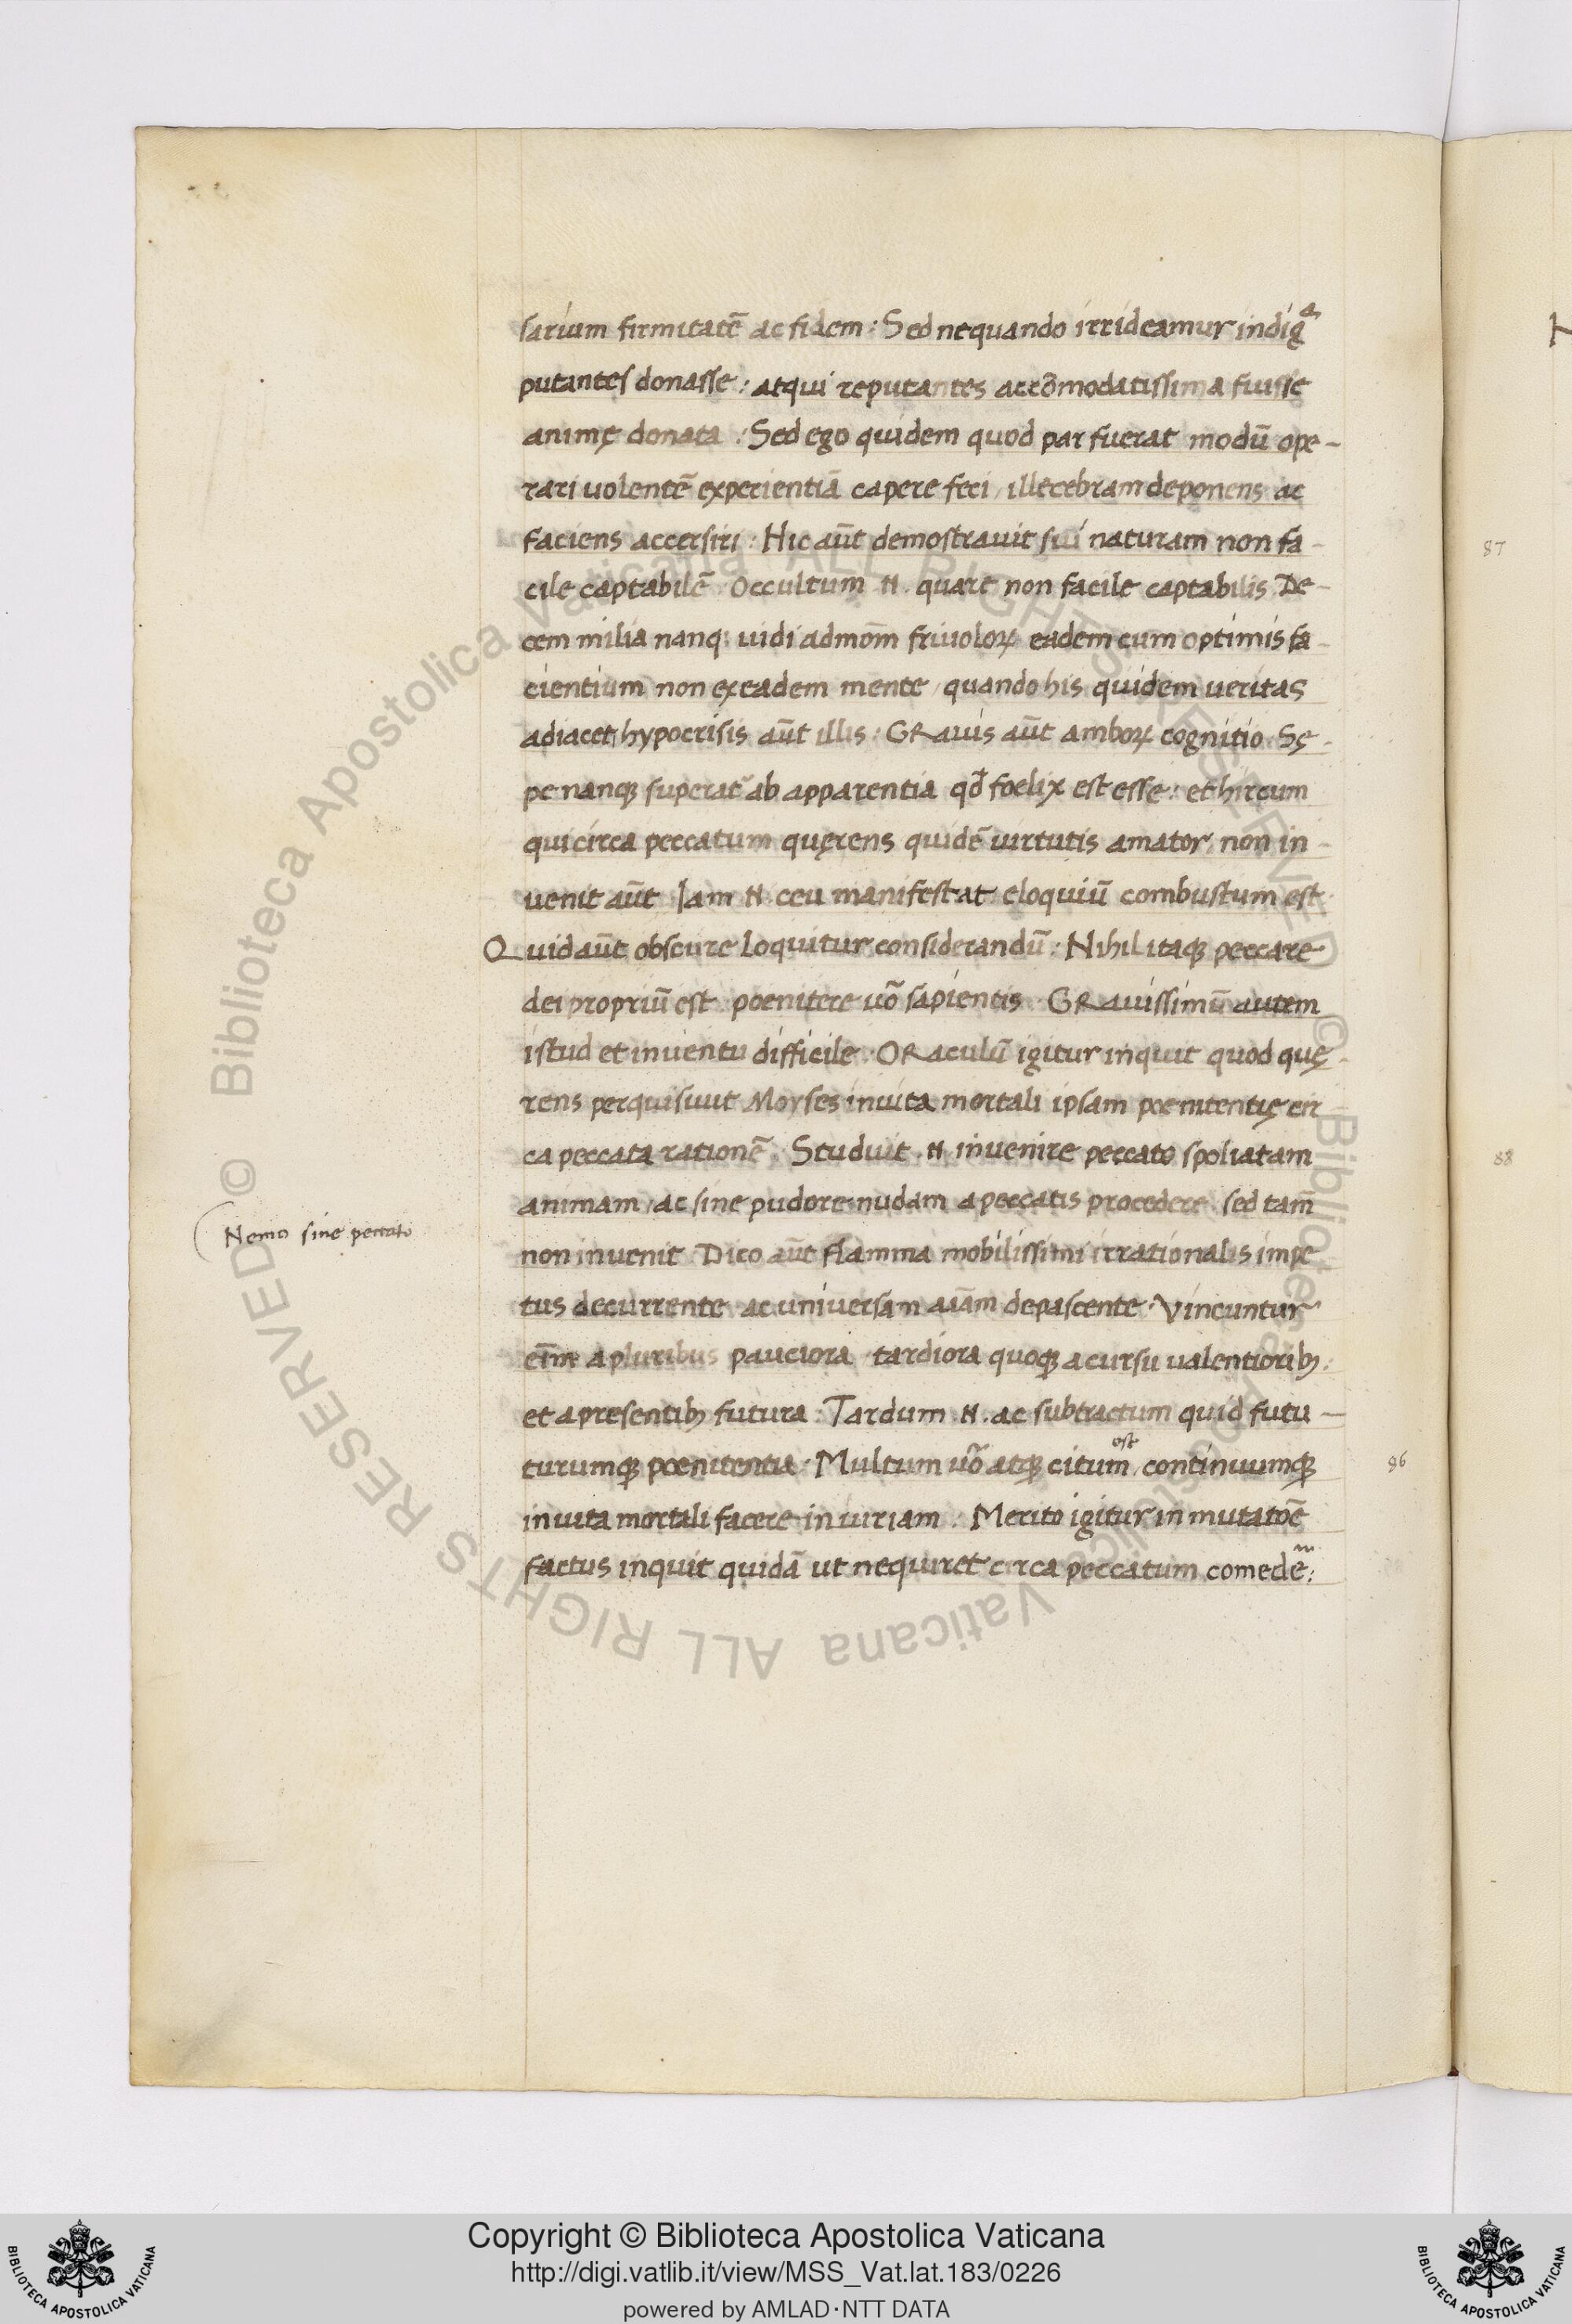 sarium firmitatē ac fidem : Sed nequando irrideamur indigᵃ
putantes donasse : atqui reputantes accōmodatissima fuisse
animę donata : Sed ego quidem quod par fuerat modū ope-
rari uolentē experientiā capere feci, illecebram deponens ac
faciens accersiri : Hic aūt demostrauit sui naturam non fa-
cile captabilē Occultum .N. quare non facile captabilis De-
cem milia nanq; uidi admom̄ friuoloꝝ eadem cum optimis fa-
cientium non ex eadem mente, quando his quidem ueritas
adiacet, hypocrisis aūt illis : GRauis aūt amboꝝ cognitio. Sę-
pe nanqꝫ superat̄ ab apparentia qđ foelix est esse : et hircum
qui circa peccatum quęrens quidē uirtutis amator non in-
uenit aūt Iam .N. ceu manifestat eloquiū combustum est
Quid aūt obscure loquitur considerandū : Nihil itaqꝫ peccare
dei propriū est poenitere uō sapientis. GRauissimū autem
istud et inuentu difficile. ORaculū igitur inquit quod quę-
rens perquisiuit Moyses in uita mortali ipsam poenitentię cir
ca peccata rationē. Studuit .N. inuenire peccato spoliatam
animam, ac sine pudore nudam a peccatis procedere sed tam̄
non inuenit Dico aūt flamma mobilissimi irrationalis impe
tus decurrente ac uniuersam aīam depascente. Vincuntur
eīm a pluribus pauciora, tardiora quoqꝫ a cursu ualentioribꝫ.
et a presentibꝫ futura : Tardum .N. ac subtractum quid futu-
turumqꝫ poenitentia. Multum uō atqꝫ citum est, continuumqꝫ
in uita mortali facere iniuriam : Merito igitur in mutatoē
factus inquit quidā ut nequiret circa peccatum comedēᵐ :
Nemo sine peccato
87
88
96
Copyright © Biblioteca Apostolica Vaticana
http://digi.vatlib.it/view/MSS_Vat.lat.183/0226
powered by AMLAD·NTT DATA
BIBLIOTECA APOSTOLICA VATICANA
BIBLIOTECA APOSTOLICA VATICANA
© Biblioteca Apostolica Vaticana ALL RIGHTS RESERVED © Biblioteca Apostolica Vaticana ALL RIGHTS RESERVED